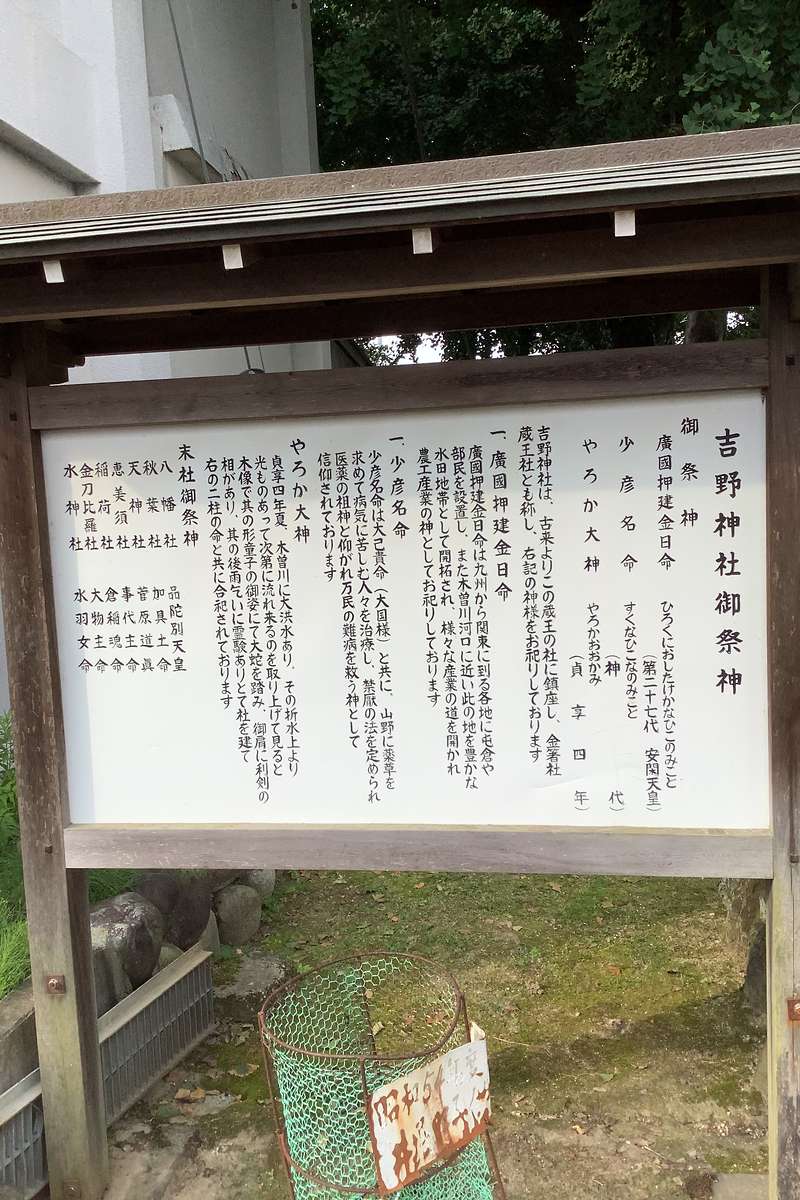 吉野神社御祭神
御祭神
廣國押建金日命 ひろくにおしたけかなひこのみこと
(第二十七代 安閑天皇)
少彦名命 すくなひこなのみこと
(神代)
やろか大神 やろかおおかみ
(貞享四年)
吉野神社は、古来よりこの蔵王の社に鎮座し、金箸社
蔵王社とも称し、右記の神様をお祀りしております
一、廣國押建金日命
廣國押建金日命は九州から関東に到る各地に屯倉や
部民を設置し、また木曽川河口に近い此の地を豊かな
水田地帯として開拓され、様々な産業の道を開かれ
農工産業の神としてお祀りしております
一、少彦名命
少彦名命は大己貴命(大国様)と共に、山野に薬草を
求めて病気に苦しむ人々を治療し、禁厭の法を定められ
医薬の祖神と仰がれ万民の難病を救う神として
信仰されております
やろか大神
貞享四年夏、木曽川に大洪水あり、その折水上より
光ものあって次第に流れ来るのを取り上げて見ると
木像で其の形童子の御姿にて大蛇を踏み、御肩に利剣の
相があり、其の後雨乞いに霊験ありとて社を建て
右の二柱の命と共に合祀されております
末社御祭神
八幡社 品陀別天皇
秋葉社 加具土命
天神社 菅原道真
恵美須社 事代主命
稲荷社 倉稲魂命
金刀比羅社 大物主命
水神社 水羽女命
昭和54年度